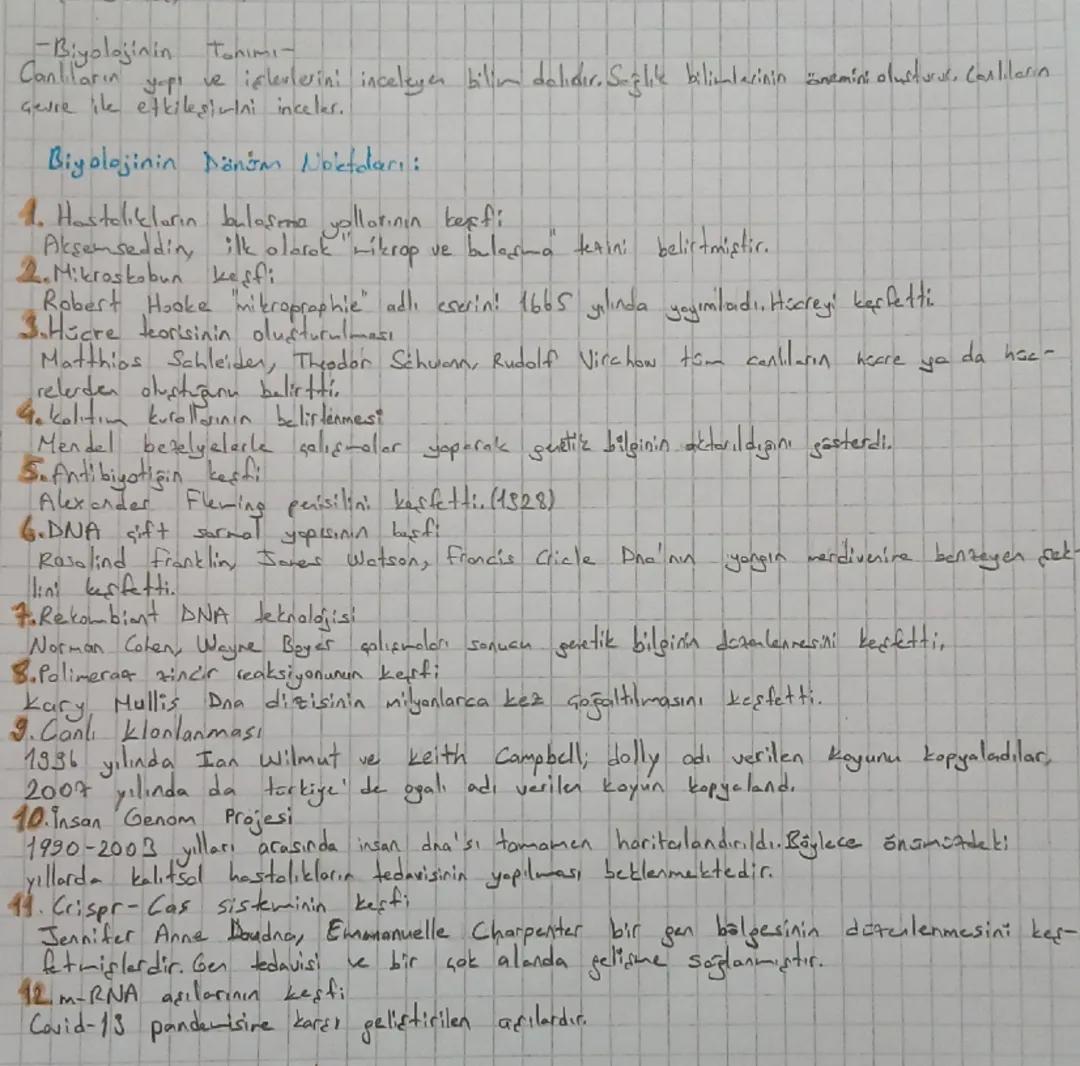 -Biyolojinin Tanımı-
Canlıların yapı ve işlevlerini inceleyen bilim dalıdır. Sağlık bilimlerinin önemini oluşturur. Canlıların
çevre ile etkileşimini inceler.
Biyolojinin Dönüm Noktaları:
1. Hastalıkların bulaşma yollarının keşfi
Akşemseddin, ilk olarak "mikrop ve bulaşma" tezini belirtmiştir.
2. Mikroskobun keşfi
Robert Hooke "mikropraphie" adlı eserini 1665 yılında yayımladı. Hücreyi keşfetti
3. Hücre teorisinin oluşturulması
Matthias Schleiden, Theodor Schwann, Rudolf Virchow tüm canlıların hücre ya da hüc-
relerden oluştuğunu belirtti.
4. Kalıtım kurallarının belirlenmesi
Mendel bezelyelerle çalışmalar yaparak genetik bilginin aktarıldığını gösterdi.
5. Antibiyotiğin keşfi
Alexander Fleming penisilini keşfetti. (1928)
6. DNA çift sarmal yapısının keşfi
Rosalind Franklin, James Watson, Francis Crick Dna'nın yangın merdivenine benzeyen şek-
lini keşfetti.
7. Rekombiant DNA teknolojisi
Norman Cohen, Wayne Boyer çalışmaları sonucu genetik bilginin düzenlenmesini keşfetti.
8. Polimeraz zincir reaksiyonunun keşfi
Kary Mullis Dna dizisinin milyonlarca kez çoğaltılmasını keşfetti.
9. Canlı klonlanması
1996 yılında Ian Wilmut ve Keith Campbell; dolly adı verilen koyunu kopyaladılar,
2007 yılında da türkiye'de oyalı adı verilen koyun kopyalandı.
10. İnsan Genom Projesi
1990-2003 yılları arasında insan dna'sı tamamen haritalandırıldı. Böylece önümüzdeki
yıllarda kalıtsal hastalıkların tedavisinin yapılması beklenmektedir.
11. Crispr-Cas sisteminin keşfi
Jennifer Anne Doudna, Emmanuelle Charpenter bir gen bölgesinin düzenlenmesini keş-
fetmişlerdir. Gen tedavisi ve bir çok alanda gelişme sağlanmıştır.
12. m-RNA aşılarının keşfi
Covid-19 pandemisine karşı geliştirilen aşılardır.